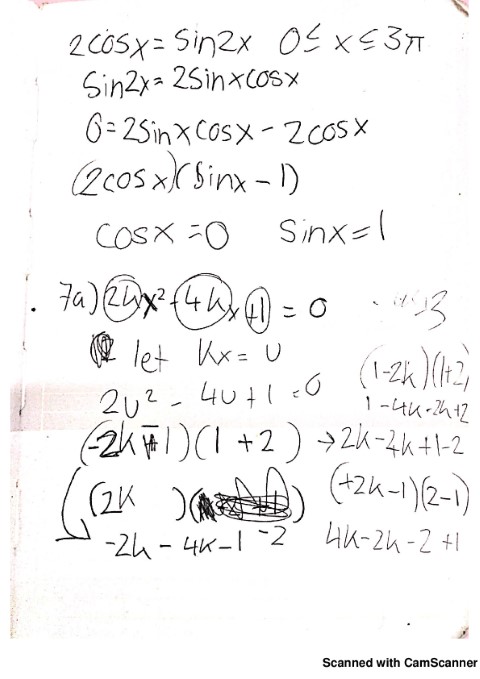 2cosx = sin2x 0 ≤ x ≤ 3π
Sin2x = 2sinxcosx
0 = 2sinxcosx - 2cosx
(2cosx)(sinx - 1)
cosx = 0 sinx = 1
7a) 2kx² - 4kx + 1 = 0
let kx = u
2u² - 4u + 1 = 0
(1-2k)(1+2)
1-4k-2k+2
(-2k+1)(1+2) → 2k-4k+1-2
(2k )( )
(+2k-1)(2-1)
-2k - 4k - 1 - 2
4k-2k-2+1
Scanned with CamScanner